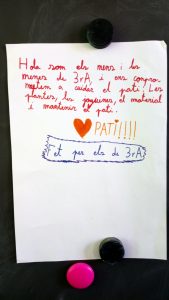 Hola som els nens i les
nenes de 3rA, i ens compro
metem a cuidar el pati. Les
plantes, les joguines, el material
i mantenir el pati.
PATI!!!!
Fet per els de 3rA